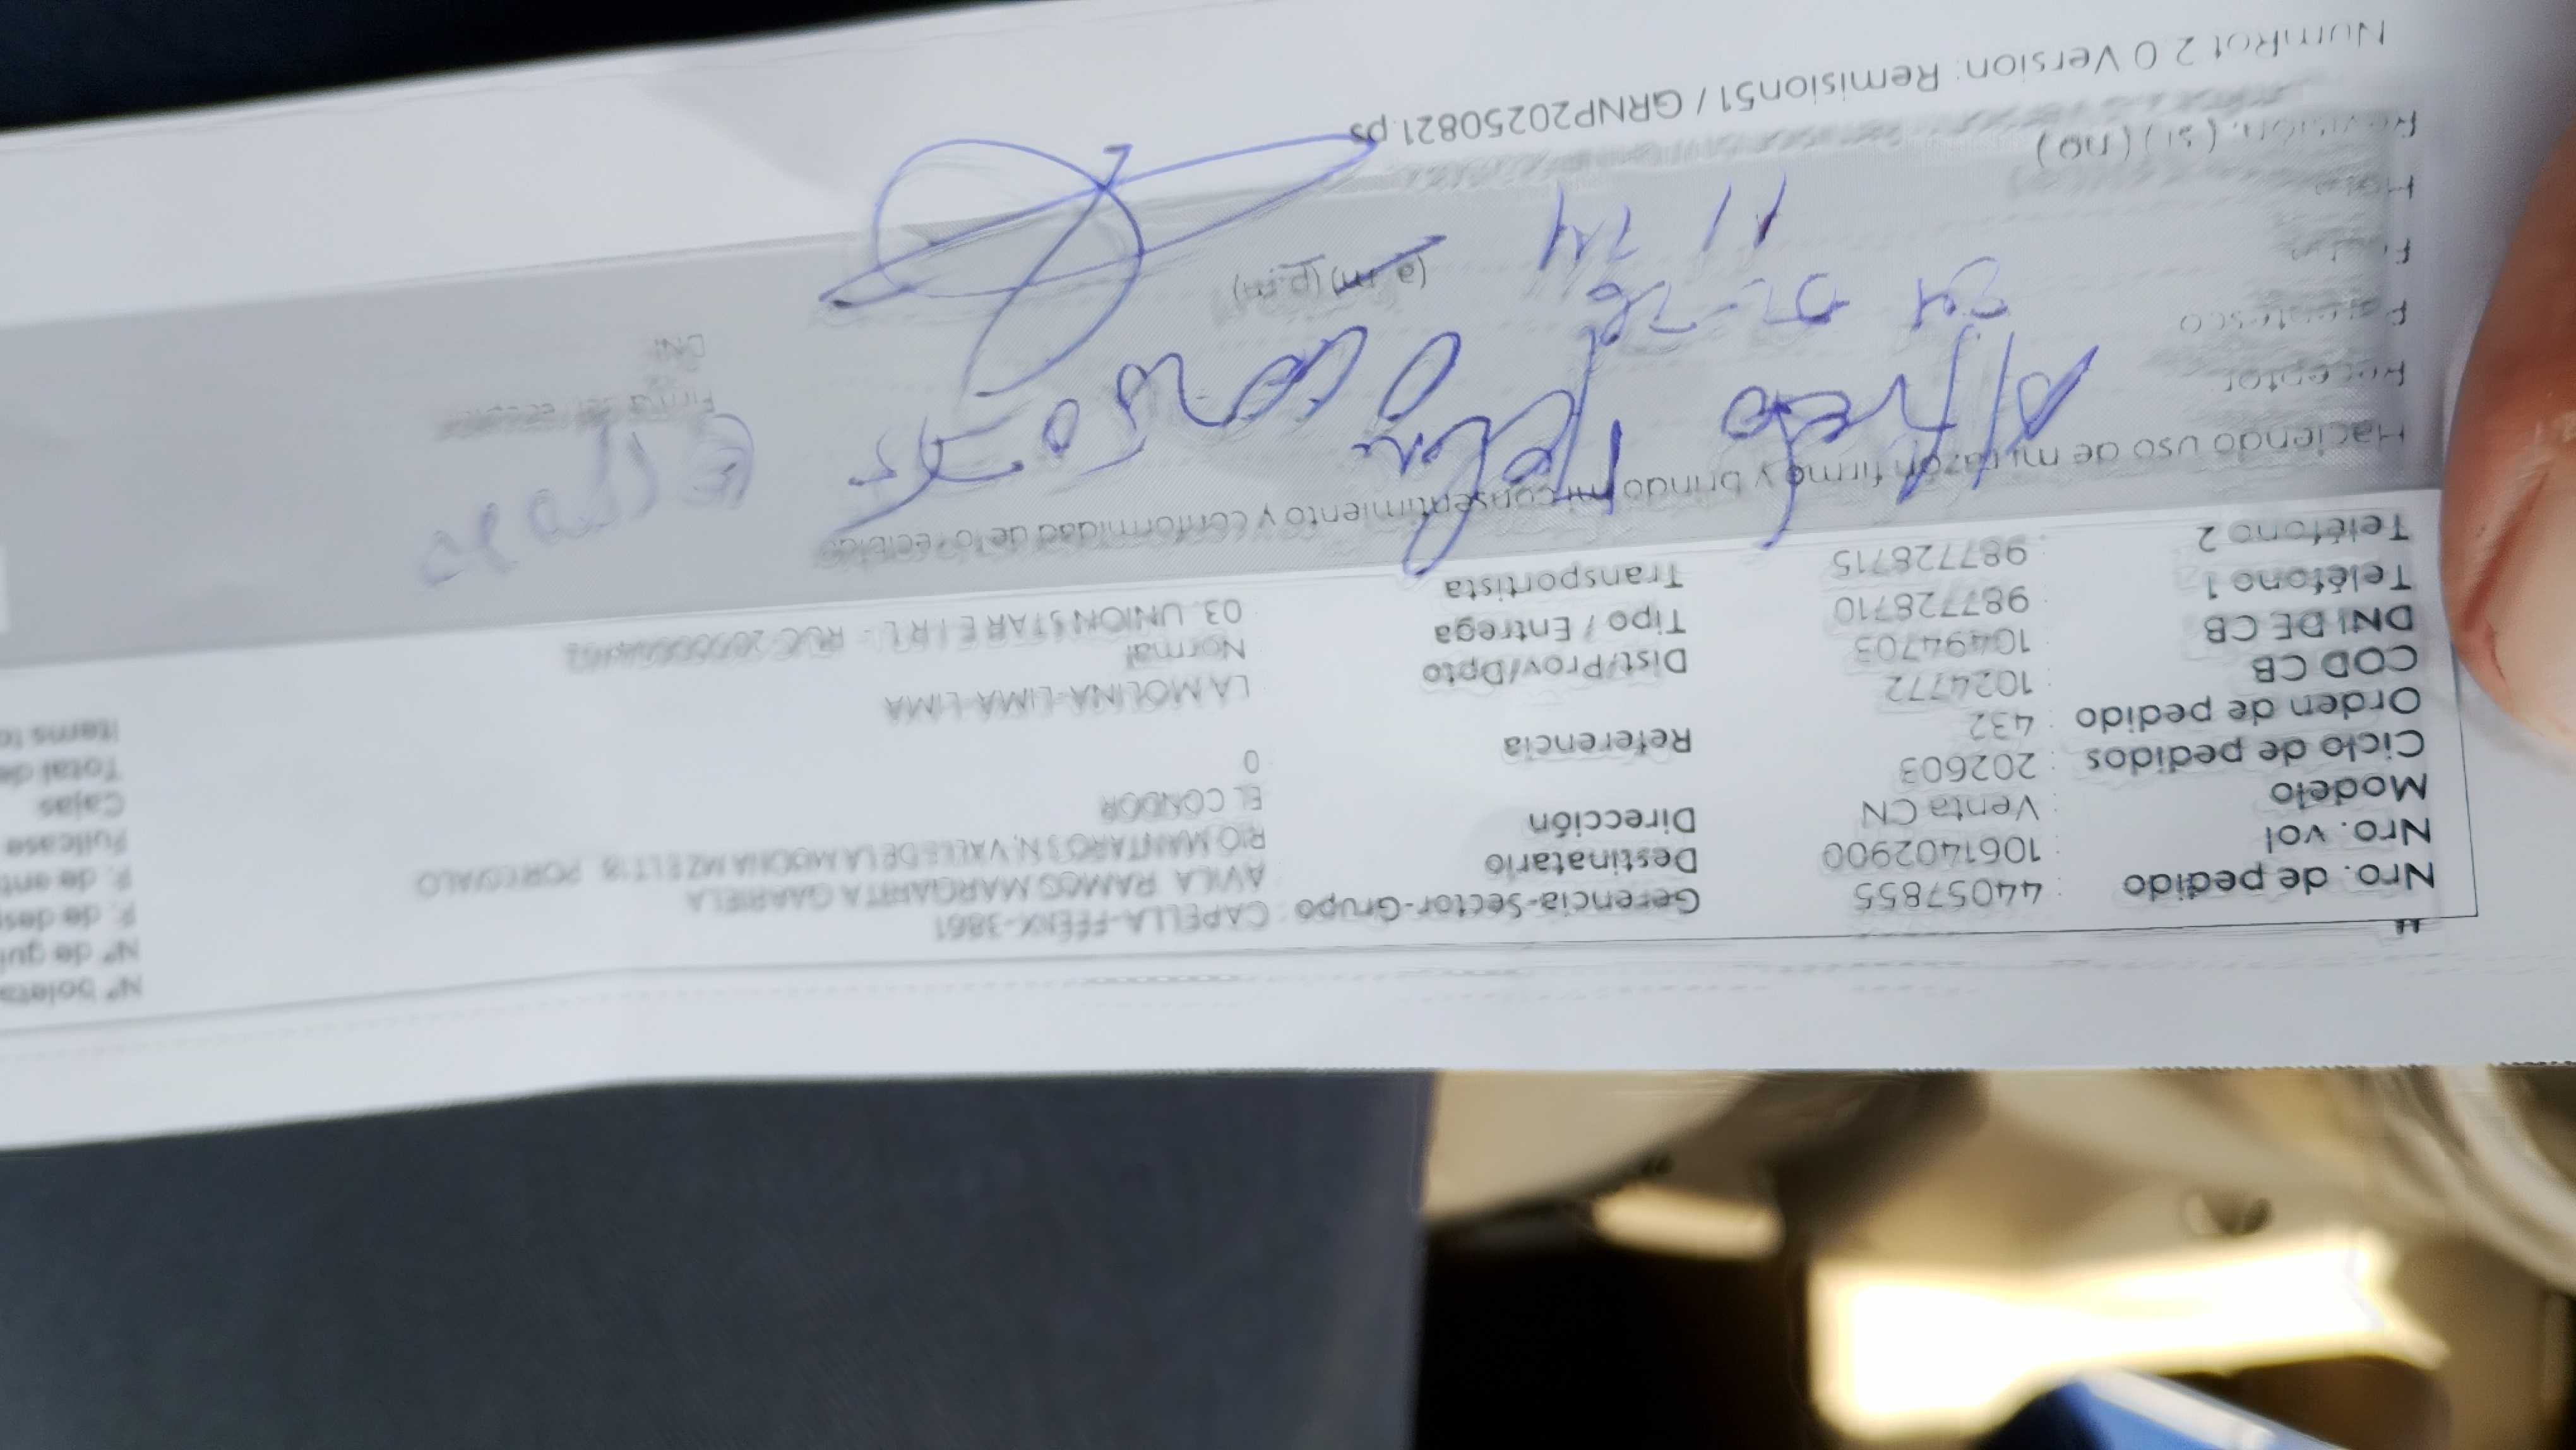 Nº boleta
Nro. de pedido : 44057855 Gerencia-Sector-Grupo : CAPELLA-FÉENIX-3861 Nº de gui
Nro. vol : 1061402900 Destinatario AVILA RAMOS MARGARITA GAABRIELA F. de des
Modelo : Venta CN Dirección RIO MANTARO SN, VALLE DE LA MOLINA MZ E LT 18 POR EGALO F. de ent
Ciclo de pedidos : 202603 EL CONDOR Fullcase
Orden de pedido : 432 Referencia 0 Cajas
COD CB : 1024772 Total de
DNI DE CB : 10494703 Dist/Prov/Dpto LA MOLINA-LIMA-LIMA Items to
Teléfono 1 : 987728710 Tipo / Entrega Normal
Teléfono 2 : 987728715 Transportista 03. UNION STAR E I R L - RUC
Haciendo uso de mi razón firmo y brindo mi consentimiento y conformidad de lo recibido
Receptor Alfredo
Parentesco
Fecha
Hora 11 14 (a.m) (p.m)
Revisión: (si) (no)
Firma del receptor
DNI
NumRot 2.0 Version: Remision51 / GRNP20250821.ps